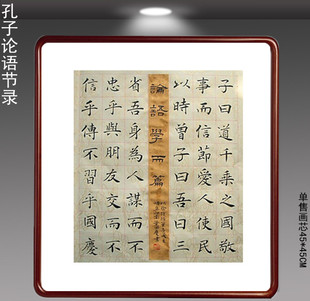 孔子论语节录
子曰道千乘之國敬
事而信節愛人使民
以時曾子曰吾日三
論語學而篇
省吾身為人謀而不
忠乎與朋友交而不
信乎傳不習乎國慶
单售画芯45*45CM